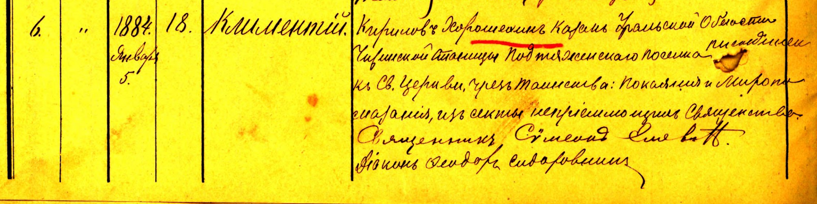 6. " 1884. 18. Климентій. Кириловъ Хорошехинъ Казакъ Уральской Области
Января
5.
Чаганской станицы Подтяженскаго поселка присоединен
къ Св. Церкви, чрезъ Таинства: Покаянія и Миропо
мазанія, изъ секты неприемлющихъ Священства
Священникъ, Сүмеонъ
Діаконъ Ѳеодоръ Сидоровнинъ